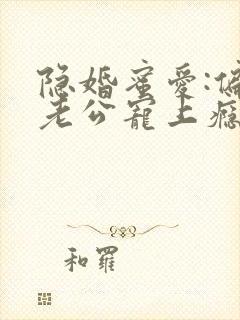 隐婚蜜爱:偏
老公宠上瘾
和罗